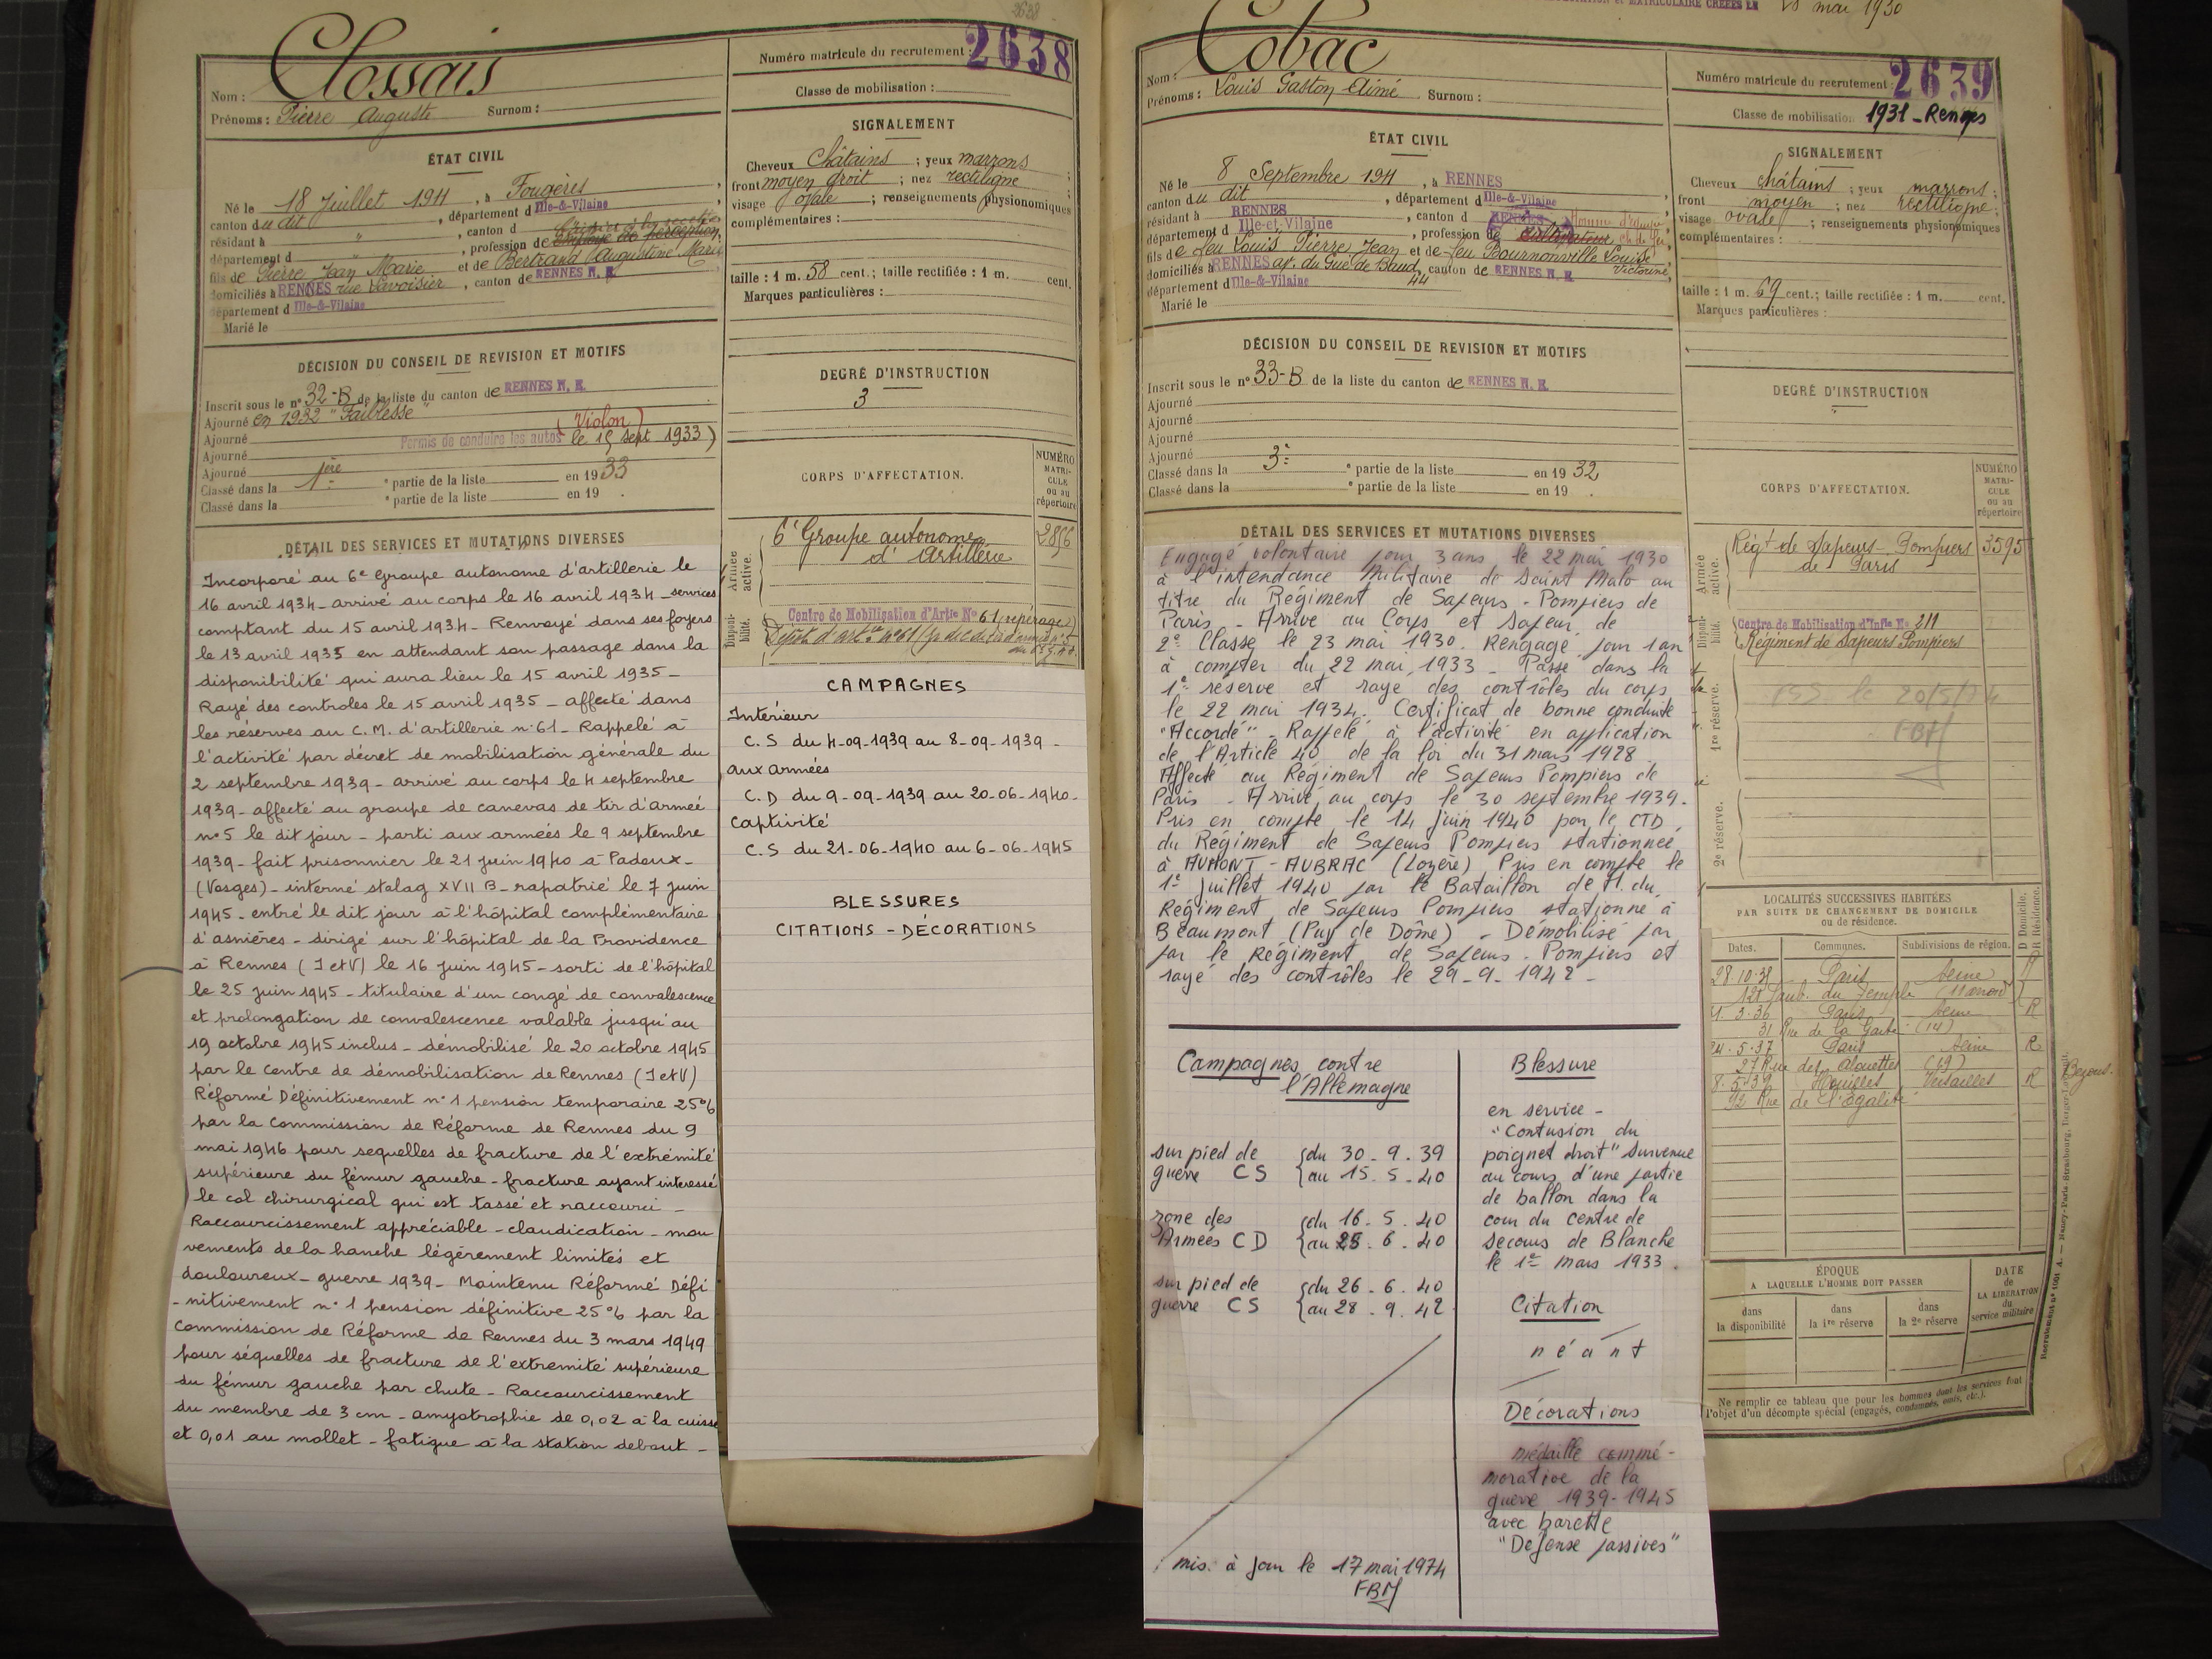 2638
Clossais
Nom :
Prénoms : Pierre Auguste Surnom :
Numéro matricule du recrutement : 2638
Classe de mobilisation :
ÉTAT CIVIL
Né le 18 Juillet 1911, à Fougères,
canton du dit, département d Ille-&-Vilaine
résidant à " , canton d
département d " , profession de employé de perception,
fils de Pierre Jean Marie et de Bertrand Augustine Marie
domiciliés à RENNES rue Lavoisier, canton de RENNES N. E.
département d Ille-&-Vilaine
Marié le
SIGNALEMENT
Cheveux Châtains ; yeux marrons ;
front moyen droit ; nez rectiligne ;
visage ovale ; renseignements physionomiques
complémentaires :
taille : 1 m. 58 cent.; taille rectifiée : 1 m. cent.
Marques particulières :
DÉCISION DU CONSEIL DE REVISION ET MOTIFS
Inscrit sous le n° 32-B de la liste du canton de RENNES N. E.
Ajourné en 1932 "Faiblesse"
Ajourné (Violon)
Ajourné Permis de conduire les autos le 15 sept 1933)
Ajourné
Classé dans la 1ère e partie de la liste en 1933
Classé dans la e partie de la liste en 19 .
DEGRÉ D'INSTRUCTION
3
CORPS D'AFFECTATION.
NUMÉRO MATRI-CULE ou au répertoire
Armée active.
6e Groupe autonome
d'Artillerie
Disponi-bilité.
Centre de Mobilisation d'Artie N° 61 (repérage)
DÉTAIL DES SERVICES ET MUTATIONS DIVERSES
Incorporé au 6e Groupe autonome d'artillerie le
16 avril 1934 - arrivé au corps le 16 avril 1934 - services
comptant du 15 avril 1934 - Renvoyé dans ses foyers
le 13 avril 1935 en attendant son passage dans la
disponibilité qui aura lieu le 15 avril 1935 -
Rayé des controles le 15 avril 1935 - affecté dans
les réserves au C. M. d'artillerie n° 61 - Rappelé à
l'activité par décret de mobilisation générale du
2 septembre 1939 - arrivé au corps le 4 septembre
1939 - affecté au groupe de canevas de tir d'armée
n° 5 le dit jour - parti aux armées le 9 septembre
1939 - fait prisonnier le 21 juin 1940 à Padoux -
(Vosges) - interné stalag XVII B - rapatrié le 7 juin
1945 - entré le dit jour à l'hôpital complémentaire
d'asnières - dirigé sur l'hôpital de la Providence
à Rennes (I et V) le 16 juin 1945 - sorti de l'hôpital
le 25 juin 1945 - titulaire d'un congé de convalescence
et prolongation de convalescence valable jusqu'au
19 octobre 1945 inclus - démobilisé le 20 octobre 1945
par le centre de démobilisation de Rennes (I et V)
Réformé Définitivement n° 1 pension temporaire 25%
par la Commission de Réforme de Rennes du 9
mai 1946 pour sequelles de fracture de l'extrémité
supérieure du fémur gauche - fracture ayant interessé
le col chirurgical qui est tassé et raccourci -
Raccourcissement appréciable - claudication - mou
vements de la hanche légérement limités et
douloureux - guerre 1939 - Maintenu Réformé Défi
-nitivement n° 1 pension définitive 25% par la
Commission de Réforme de Rennes du 3 mars 1949
pour séquelles de fracture de l'extremité supérieure
du fémur gauche par chute - Raccourcissement
du membre de 3 cm - amyotrophie de 0,02 à la cuisse
et 0,01 au mollet - fatigue à la station debout -
CAMPAGNES
Intérieur
C.S du 4-09-1939 au 8-09-1939 -
aux armées
C.D du 9-09-1939 au 20-06-1940 -
Captivité
C.S du 21-06-1940 au 6-06-1945
BLESSURES
CITATIONS - DÉCORATIONS
28 mai 1930
Cobac
Nom :
Prénoms : Louis Gaston Aimé Surnom :
Numéro matricule du recrutement : 2639
Classe de mobilisation 1931 - Rennes
ÉTAT CIVIL
Né le 8 Septembre 1911, à RENNES
canton du dit, département d Ille-&-Vilaine
résidant à RENNES, canton d RENNES
département d Ille-et-Vilaine, profession de cultivateur
fils de feu Louis Pierre Jean et de feu Bournonville Louise Victorine,
domiciliés à RENNES av. du Gué de Baud, canton de RENNES N. E.
département d Ille-&-Vilaine 44
Marié le
SIGNALEMENT
Cheveux châtains ; yeux marrons ;
front moyen ; nez rectiligne ;
visage ovale ; renseignements physionomiques
complémentaires :
taille : 1 m. 69 cent.; taille rectifiée : 1 m. cent.
Marques particulières :
DÉCISION DU CONSEIL DE REVISION ET MOTIFS
Inscrit sous le n° 33-B de la liste du canton de RENNES N. E.
Ajourné
Ajourné
Ajourné
Ajourné
Classé dans la 3e e partie de la liste en 1932
Classé dans la e partie de la liste en 19 .
DEGRÉ D'INSTRUCTION
CORPS D'AFFECTATION.
NUMÉRO MATRI-CULE ou au répertoire
Armée active.
Régt de Sapeurs-Pompiers 3595
de Paris
Disponi-bilité.
Centre de Mobilisation d'Infie N° 211
Régiment de Sapeurs Pompiers
1re réserve.
2e réserve.
DÉTAIL DES SERVICES ET MUTATIONS DIVERSES
Engagé volontaire pour 3 ans le 22 mai 1930
à l'intendance Militaire de Saint Malo au
titre du Régiment de Sapeurs-Pompiers de
Paris - Arrivé au Corps et Sapeur de
2e Classe le 23 mai 1930. Rengagé pour 1 an
à compter du 22 mai 1933 - Passé dans la
1e réserve et rayé des contrôles du corps
le 22 mai 1934. Certificat de bonne conduite
"Accordé" - Rappelé à l'activité en application
de l'Article 40 de la loi du 31 mars 1928.
Affecté au Régiment de Sapeurs Pompiers de
Paris - Arrivé au corps le 30 septembre 1939.
Pris en compte le 14 juin 1940 par le CTD
du Régiment de Sapeurs Pompiers stationnée
à AUMONT-AUBRAC (Lozère) Pris en compte le
1e juillet 1940 par le Bataillon de M. du
Régiment de Sapeurs Pompiers stationné à
Beaumont (Puy de Dôme) - Démobilisé par
par le Régiment de Sapeurs-Pompiers et
rayé des contrôles le 29-9-1942 -
Campagnes contre
l'Allemagne
sur pied de guerre CS { du 30-9-39 au 15-5-40
zone des Armées CD { du 16.5.40 au 25.6.40
sur pied de guerre CS { du 26.6.40 au 28.9.42
mis à jour le 17 mai 1974
FBM
Blessure
en service -
"Contusion du
poignet droit" survenue
au cours d'une partie
de ballon dans la
cour du centre de
secours de Blanche
le 1e mars 1933.
Citation
néant
Décorations
médaille commé-
morative de la
guerre 1939-1945
avec barette
"Défense passives"
LOCALITÉS SUCCESSIVES HABITÉES
PAR SUITE DE CHANGEMENT DE DOMICILE
ou de résidence.
Dates. Communes. Subdivisions de région. D Domicile. R Résidence.
28.10.38 Paris Seine R
121 faub. du Temple
4.3.36 Paris Seine R
31 Rue de la Gaité (14)
24.5.37 Paris Seine R
27 Rue des Alouettes (19)
8.5.39 Houilles Versailles R
92 Rue de l'Egalité
ÉPOQUE
A LAQUELLE L'HOMME DOIT PASSER
dans la disponibilité
dans la 1re réserve
dans la 2e réserve
DATE de LA LIBÉRATION du service militaire
Ne remplir ce tableau que pour les hommes dont les services font
l'objet d'un décompte spécial (engagés, condamnés, omis, etc.).